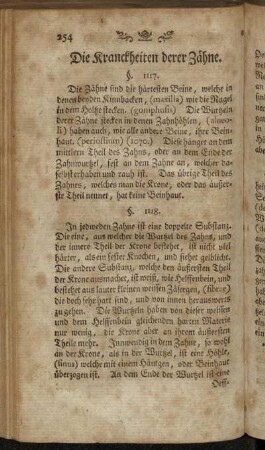 254
Die Kranckheiten derer Zähne.
§. 1117.
Die Zähne sind die härtesten Beine, welche in
denen beyden Kinnbacken, (maxillis) wie die Nägel
in dem Holtze stecken. (gomphosis) Die Wurtzeln
derer Zähne stecken in denen Zahnhöhlen, (alveo-
li) haben auch, wie alle andere Beine, ihre Bein-
haut. (periostium) (1070.) Diese hänget an dem
mittlern Theil des Zahns, oder an dem Ende der
Zahnwurtzel, fest an dem Zahne an, welcher da-
selbst erhaben und rauh ist. Das übrige Theil des
Zahnes, welches man die Krone, oder das äußer-
ste Theil nennet, hat keine Beinhaut.
§. 1118.
In jedweden Zahne ist eine doppelte Substanz.
Die eine, aus welcher die Wurtzel des Zahns, und
der innere Theil der Krone bestehet, ist nicht viel
härter, als ein fester Knochen, und siehet gelblicht.
Die andere Substanz, welche den äusersten Theil
der Krone ausmachet, ist weiß, wie Helffenbein, und
bestehet aus lauter kleinen weissen Zäsergen, (fibræ)
die doch sehr hart sind, und von innen herauswerts
zu gehen. Die Wurtzeln haben von dieser weissen
und dem Helffenbein gleichenden harten Materie
nur wenig, die Krone aber an ihrem äuseresten
Theile mehr. Innwendig in dem Zahne, so wohl
an der Krone, als in der Wurtzel, ist eine Höhle,
(sinus) welche mit einem Häutgen, oder Beinhaut
überzogen ist. An dem Ende der Wurtzel ist eine
Oeff-